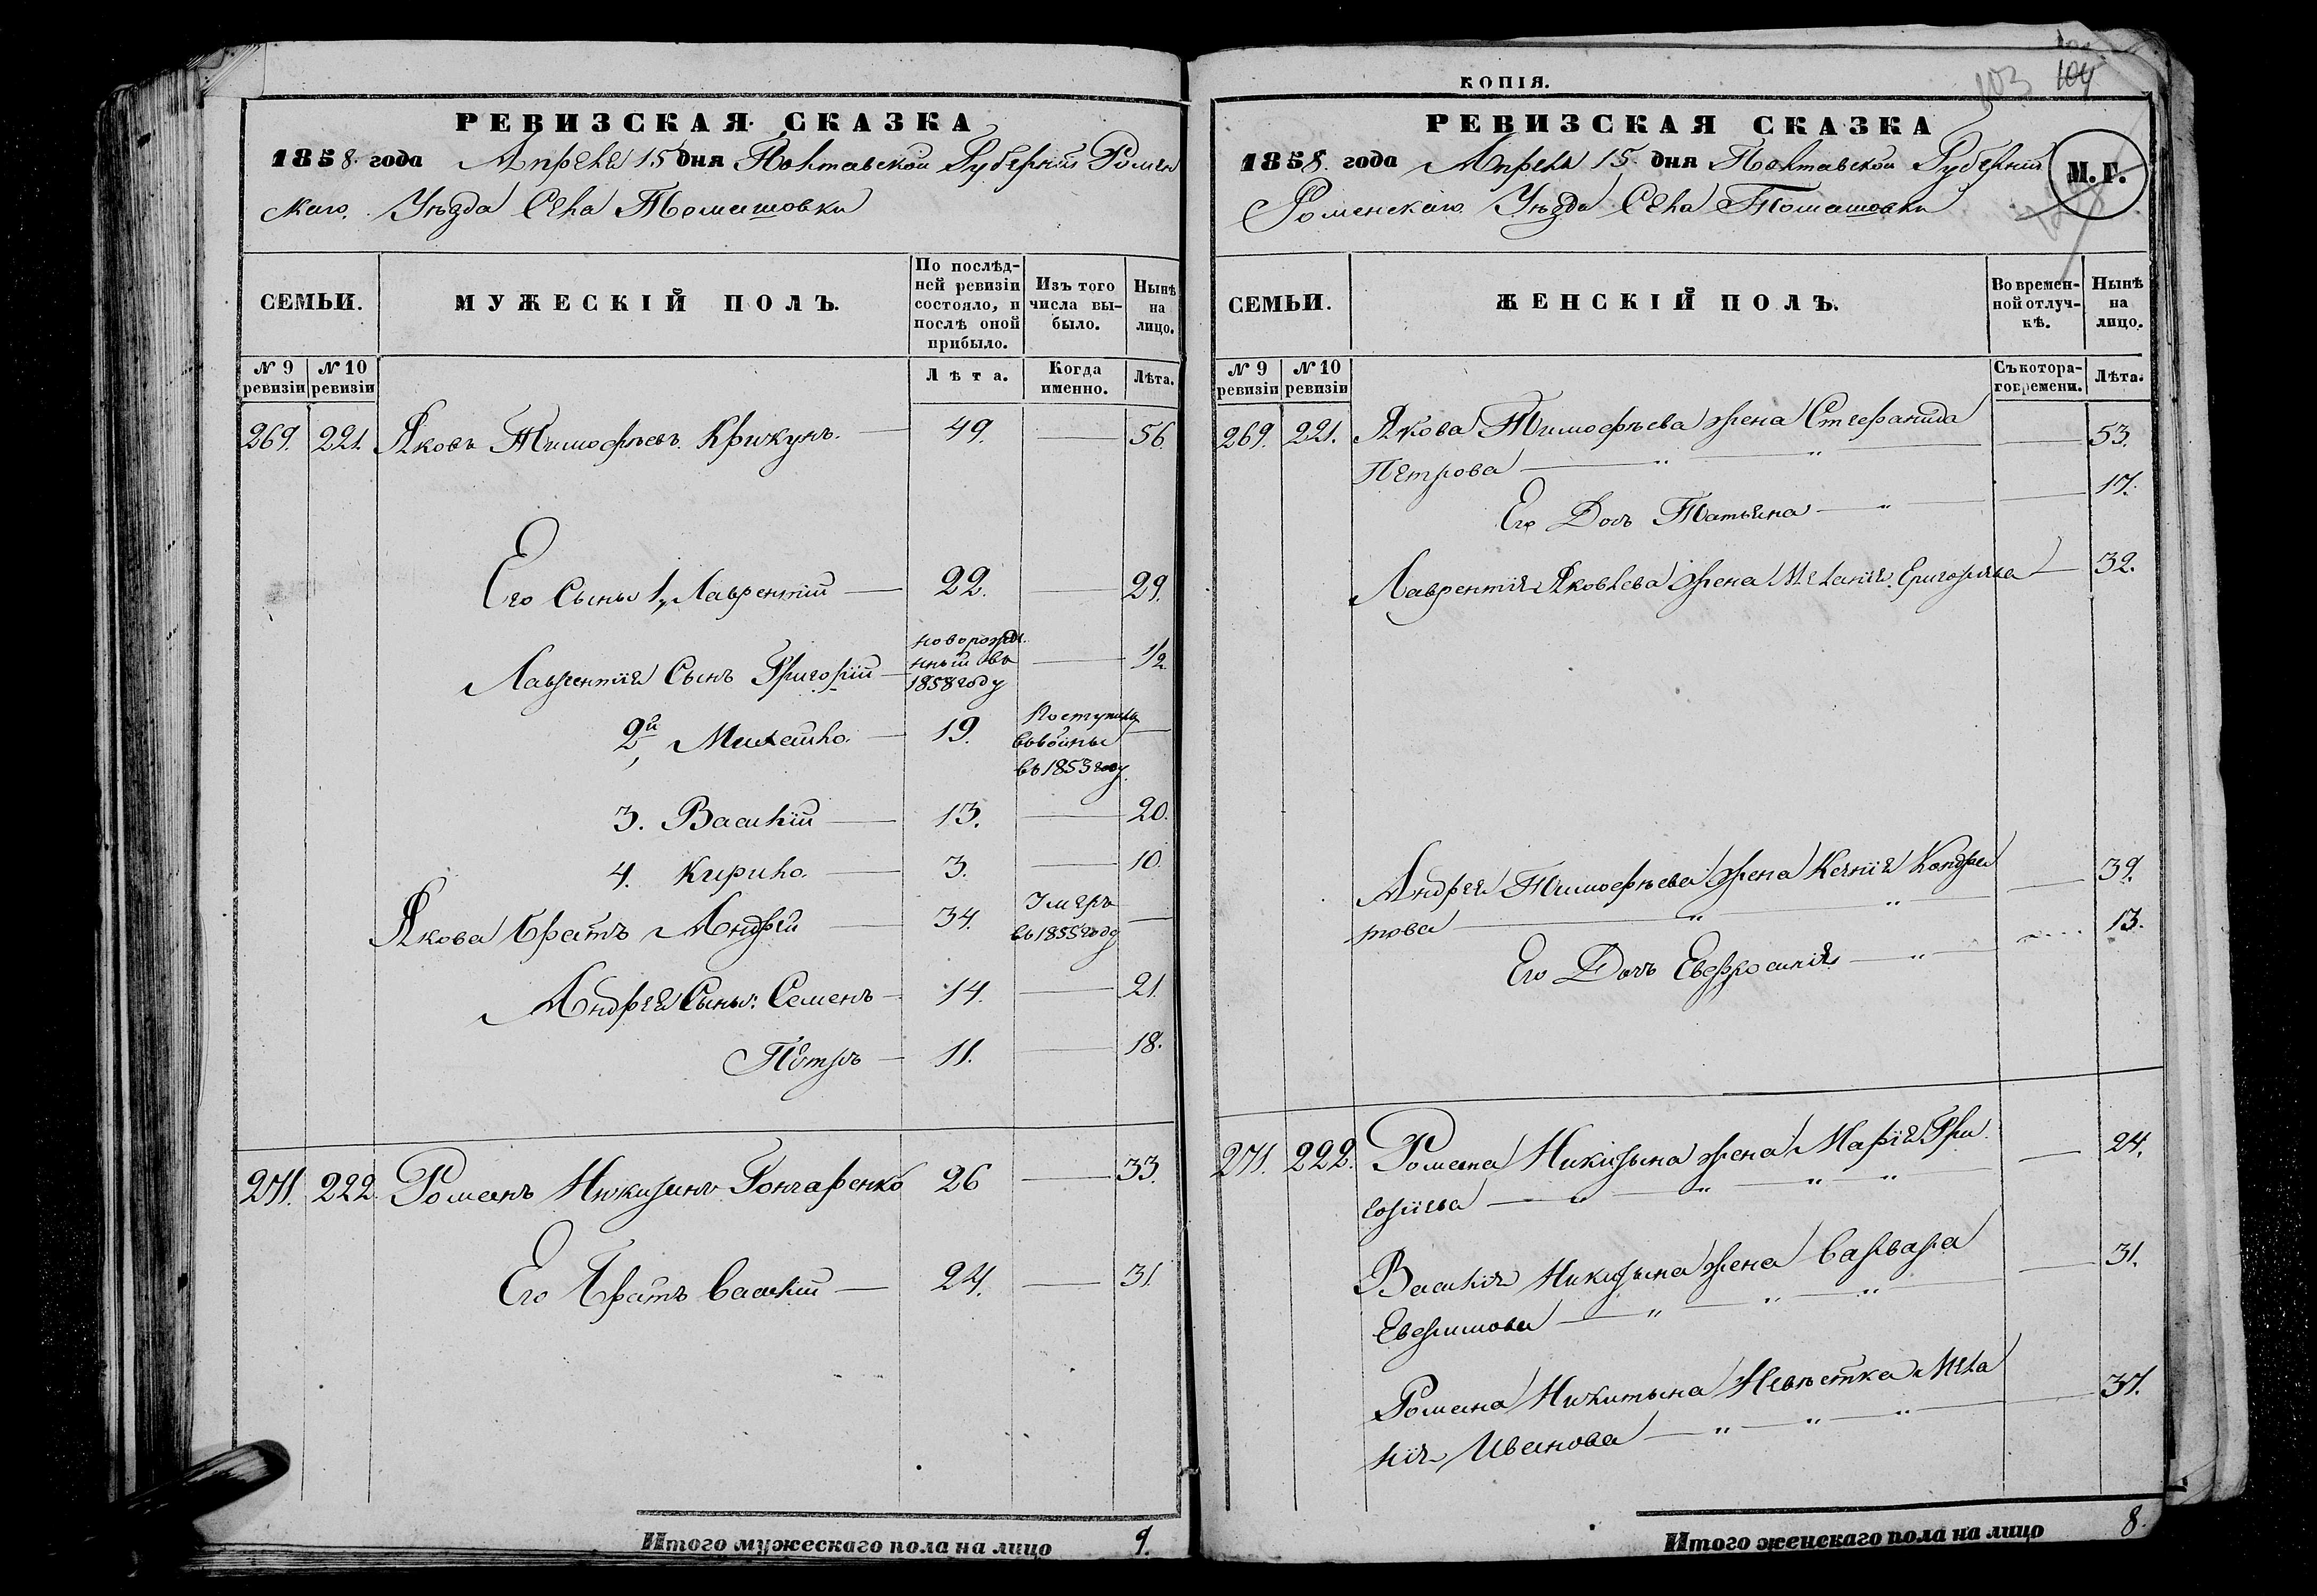 РЕВИЗСКАЯ СКАЗКА
1858. года Апреля 15 дня Полтавской Губерніи Ромен
скаго Уѣзда Села Томашовки
СЕМЬИ.
МУЖЕСКІЙ ПОЛЪ.
По послѣд-
ней ревизіи
состояло, и
послѣ оной
прибыло.
Изъ того
числа вы-
было.
Нынѣ
на
лицо.
№ 9
ревизіи
№ 10
ревизіи
Лѣта.
Когда
именно.
Лѣта.
269. 221. Яковъ Тимофѣевъ Крикунъ. 49. 56
Его Сыны 1, Лаврентій 22. 29.
Лаврентія Сынъ Григорій новорожде
нный въ
1858 году 1/2
2й, Михайло. 19. Поступилъ
въ войны
въ 1853 году.
3. Василій 13. 20.
4. Кирило. 3. 10.
Якова братъ Андрей 34. Умеръ
въ 1855 году
Андрея Сыны: Семенъ 14. 21.
Петръ 11. 18.
271. 222. Романъ Никитинъ Гончаренко 26 33.
Его братъ Василій 24. 31.
Итого мужескаго пола на лицо 9.
КОПІЯ.
103 104
РЕВИЗСКАЯ СКАЗКА
1858. года Апреля 15. дня Полтавской Губерніи
Роменскаго Уѣзда Села Томашовки
М. Г.
СЕМЬИ.
ЖЕНСКІЙ ПОЛЪ.
Во времен-
ной отлуч-
кѣ.
Нынѣ
на
лицо.
№ 9
ревизіи
№ 10
ревизіи
Съ котора-
го времени.
Лѣта.
269. 221. Якова Тимофѣева жена Стефанида 53.
Петрова
Его Дочь Татьяна 17.
Лаврентія Яковлева жена Меланія Григорьева 32.
Андрея Тимофѣева жена Ксенія Кондра 39.
това
Его Дочь Евфросинія 13.
271. 222. Романа Никитына жена Марія Гри 24.
горіева
Василія Никитына жена Варвара 31.
Ефримова
Романа Никитына Невѣстка Мела 37.
нія Иванова
Итого женскаго пола на лицо 8.